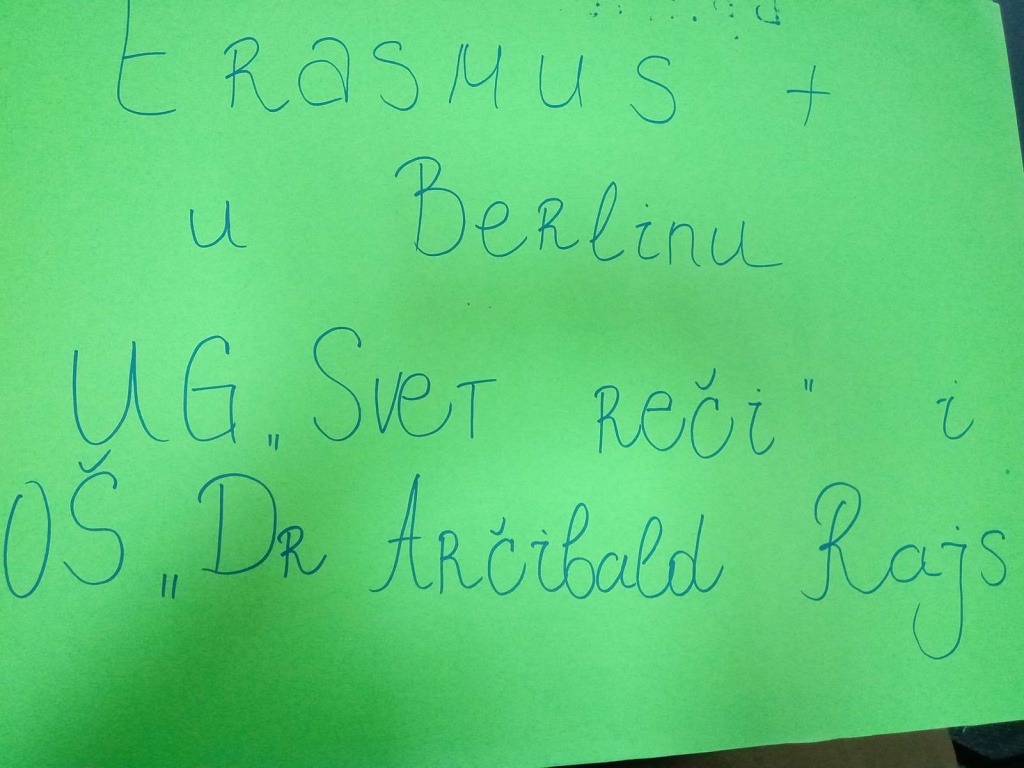 Erasmus +
u Berlinu
UG „Svet reči" i
OŠ „Dr Arčibald Rajs